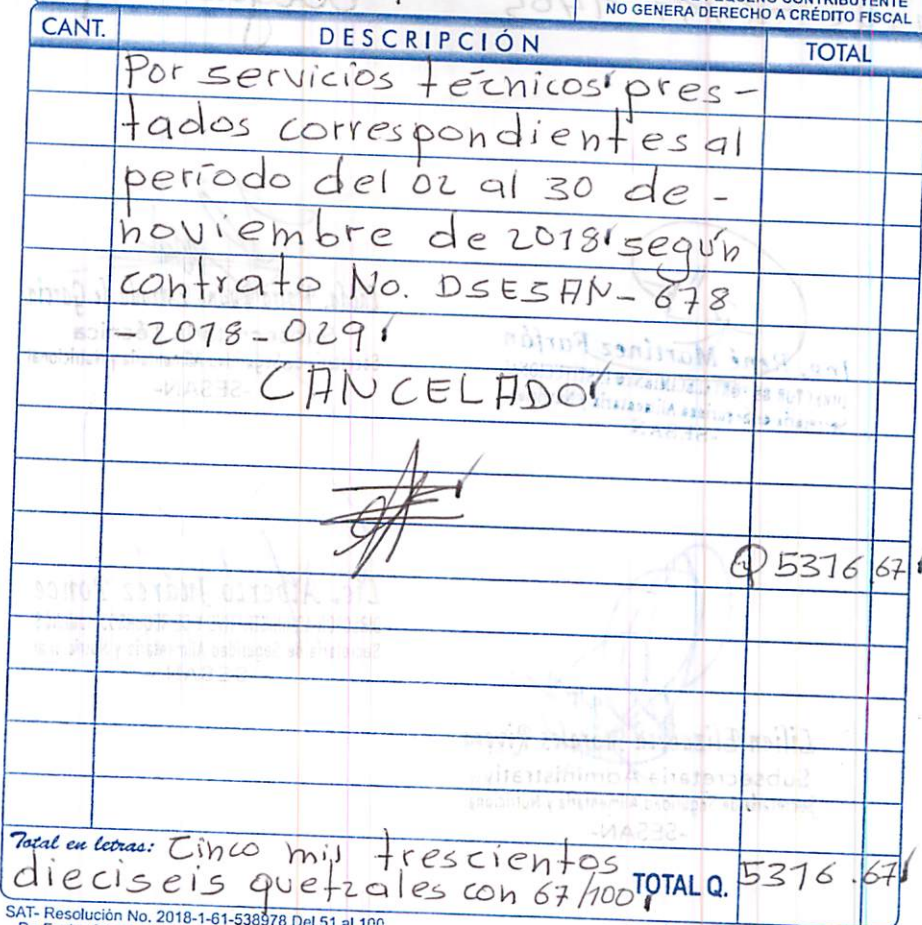 NO GENERA DERECHO A CRÉDITO FISCAL
CANT. DESCRIPCIÓN TOTAL
Por servicios técnicos pres-
tados correspondientes al
período del 02 al 30 de-
noviembre de 2018 según
contrato No. DSESAN-678
-2018-029.
CANCELADO
Q 5316 67
Total en letras: Cinco mil trescientos
dieciseis quetzales con 67/100 TOTAL Q. 5316.67
SAT- Resolución No. 2018-1-61-538978 Del 51 al 100